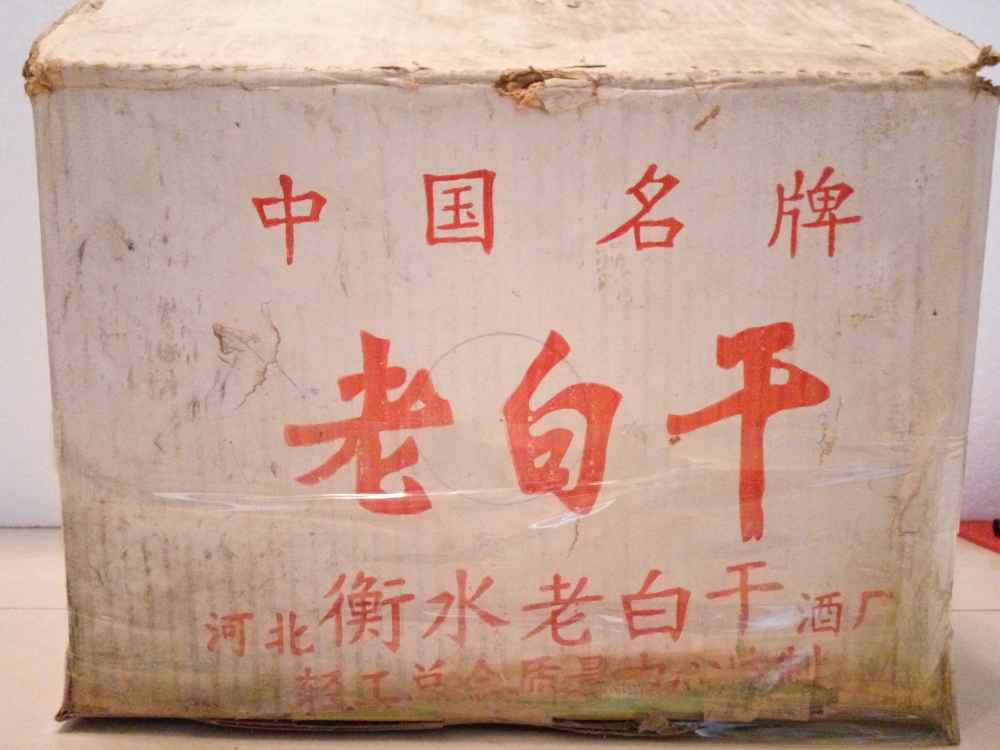 中国名牌
老白干
河北衡水老白干酒厂
轻工总会质量中心监制